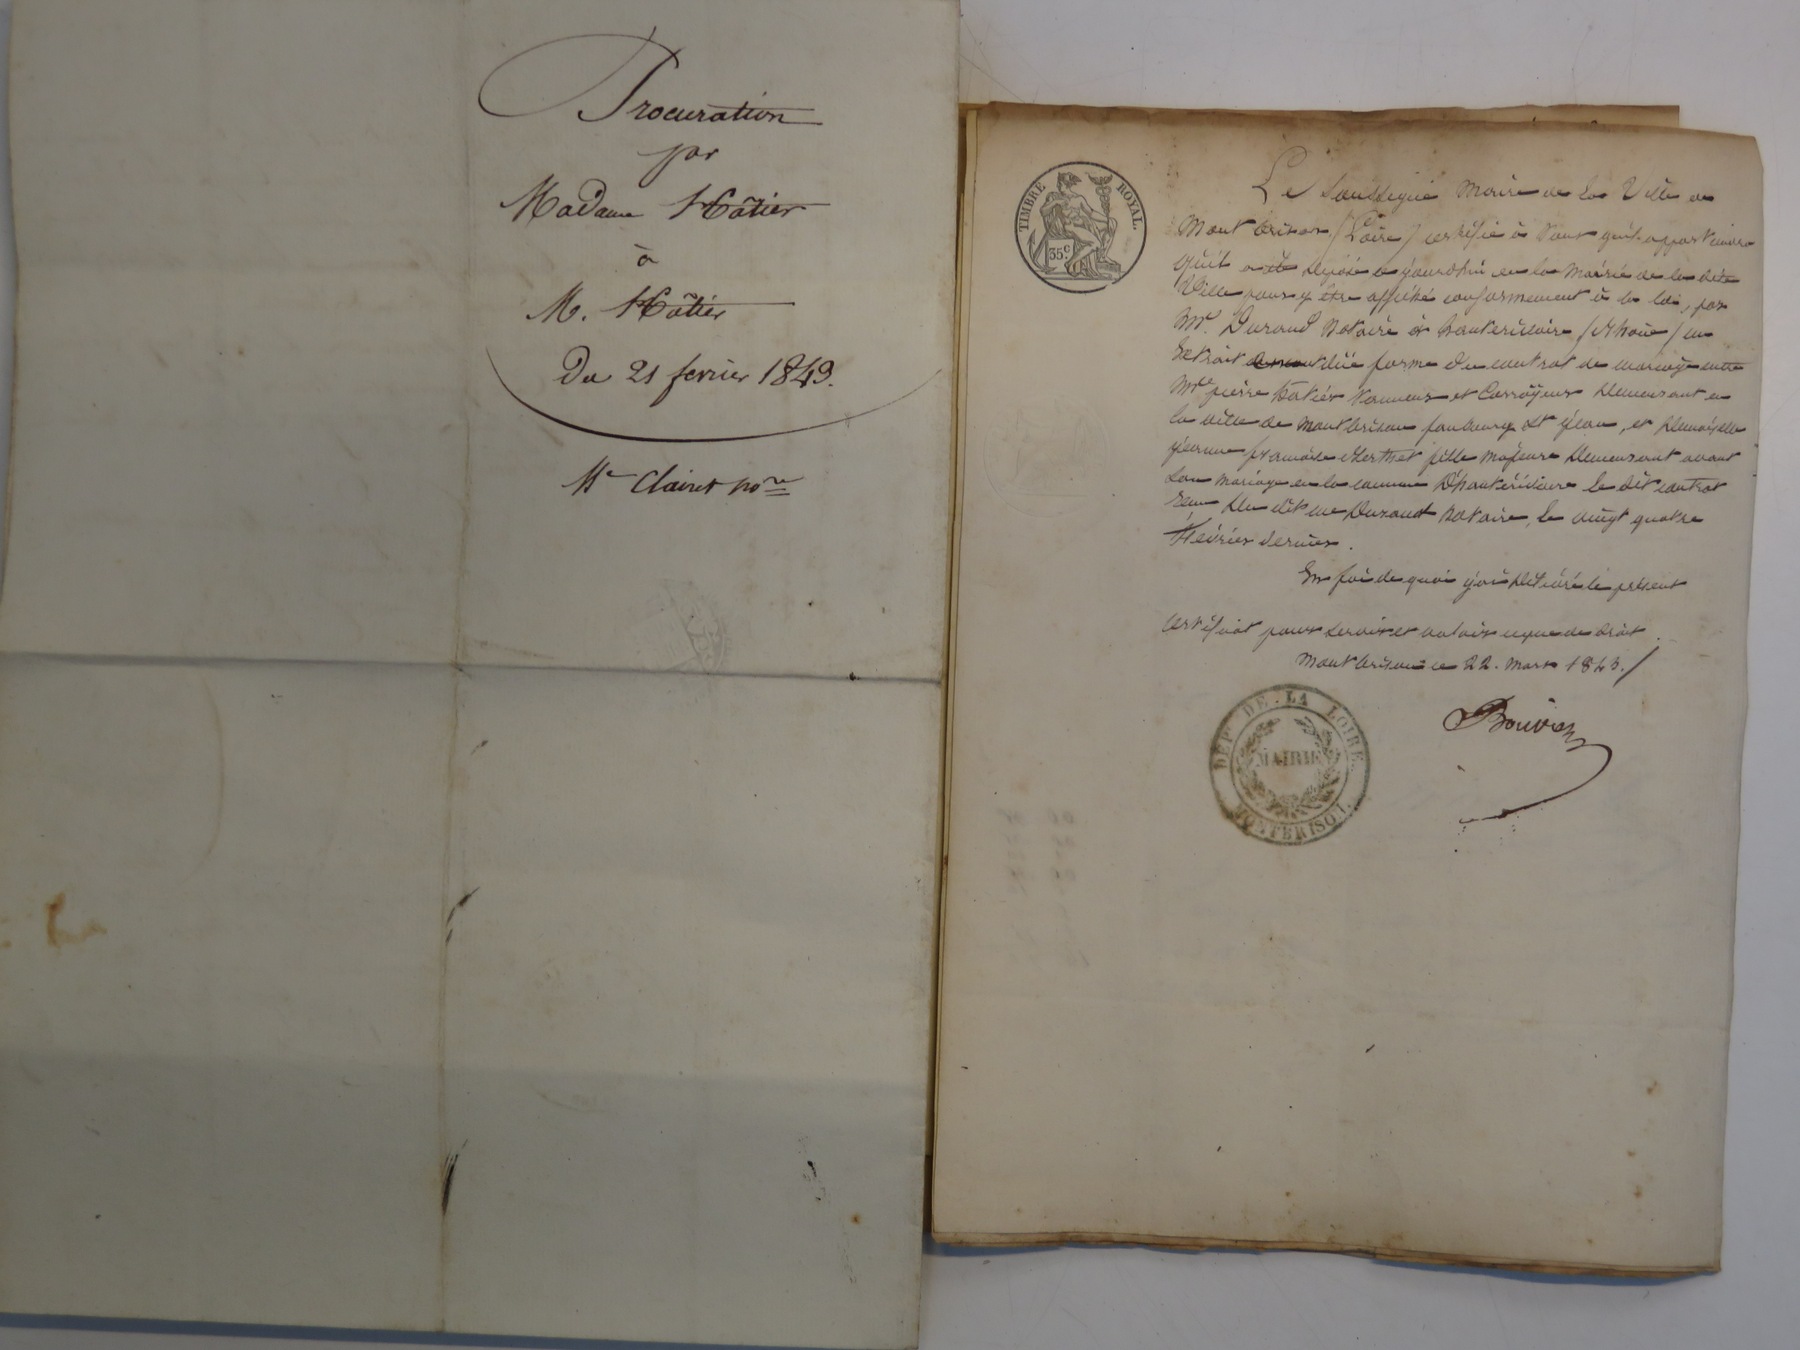 Procuration
par
Madame Hâtier
à
M. Hâtier
Du 21 fevrier 1843.
Me Clairet nore
TIMBRE ROYAL.
35c
Le Soussigné Maire de la Ville de
Montbrison (Loire) certifie à tout qu'il appartiendra
qu'il a été deposé ce jourdhui en la Mairie de la dite
Ville pour y être affiché conformement à la loi, par
Mr. Durand Notaire à hauterivoire (Rhone) un
Extrait duë forme du contrat de mariage entre
Mre pierre hatier tanneur et Corroÿeur demeurant en
la ville de Montbrison faubourg St jean, et demoiselle
jeanne françoise fille majeure demeurant avant
son mariage en la commune D'hauterivoire le dit contrat
reçu du dit me Durand Notaire, le vingt quatre
février dernier.
En foi de quoi j'ai délivré le présent
certificat pour servir et valoir ce que de droit.
Montbrison ce 22. Mars 1843./
Bouvier
DEPT DE LA LOIRE
MAIRIE
MONTBRISON